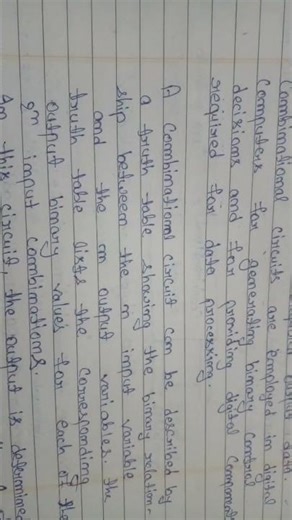 output data.
Combinational circuits are employed in digital
Computers for generating binary Control
decisions and for providing digital Component
required for data processing.
A Combinational circuit can be describes by
a truth table showing the binary relation-
ship between the n input variable
and the m output variables. The
truth table lists the corresponding
output binary values for each of the
2n input combinations.
In this circuit, the output is determined